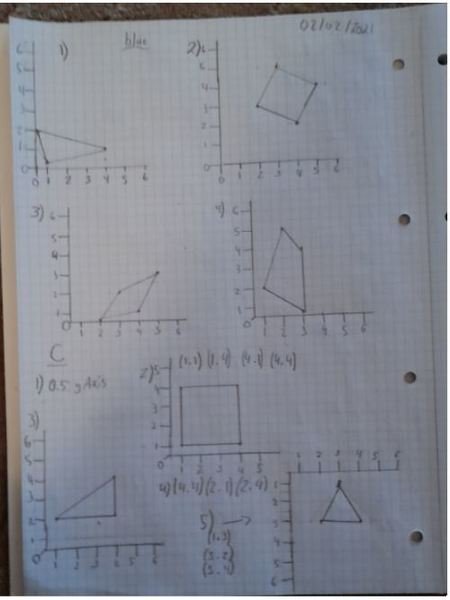 02/02/2021
blue
1)
6
5
4
3
2
1
0 1 2 3 4 5 6
2)
6
5
4
3
2
1
0 1 2 3 4 5 6
3)
6
5
4
3
2
1
0 1 2 3 4 5 6
4)
6
5
4
3
2
1
0 1 2 3 4 5 6
C
1) 0.5 y Axis
2)
(1,1) (1,4) (4,1) (4,4)
5
4
3
2
1
0 1 2 3 4 5
3)
6
5
4
3
2
1
0 1 2 3 4 5 6
4) (4,4) (2,1) (2,4)
5) →
(1,3)
(3,2)
(3,4)
1 2 3 4 5 6
1
2
3
4
5
6